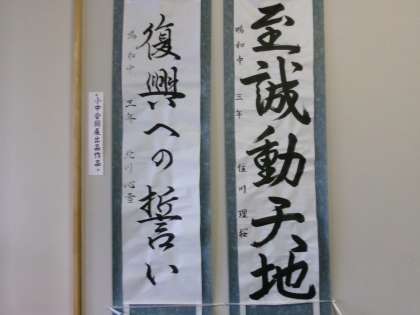 至誠動天地
鳴和中 三年 住川 理桜
復興への誓い
鳴和中
小中合同展出品作品